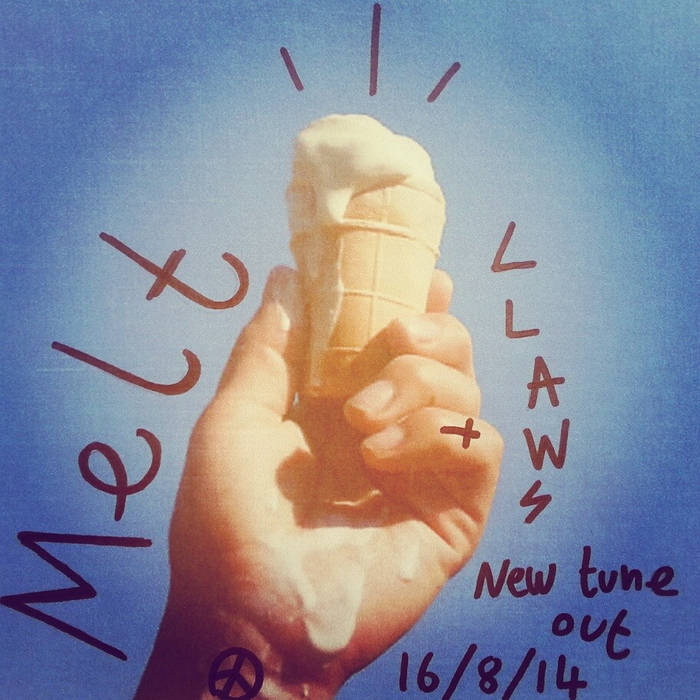 Melt
LLAWS
+
New tune
out
16/8/14